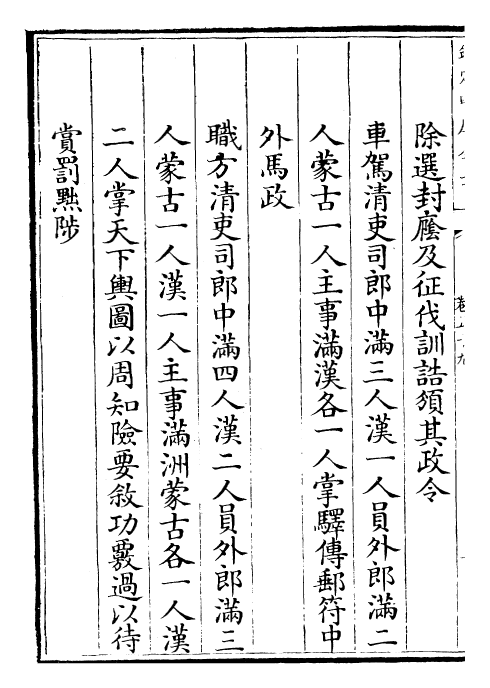 除選封廕及征伐訓誥頒其政令
車駕清吏司郎中滿三人漢一人員外郎滿二
人蒙古一人主事滿漢各一人掌驛傳郵符中
外馬政
職方清吏司郎中滿四人漢二人員外郎滿三
人蒙古一人漢一人主事滿洲蒙古各一人漢
二人掌天下輿圖以周知險要敘功覈過以待
賞罰黜陟